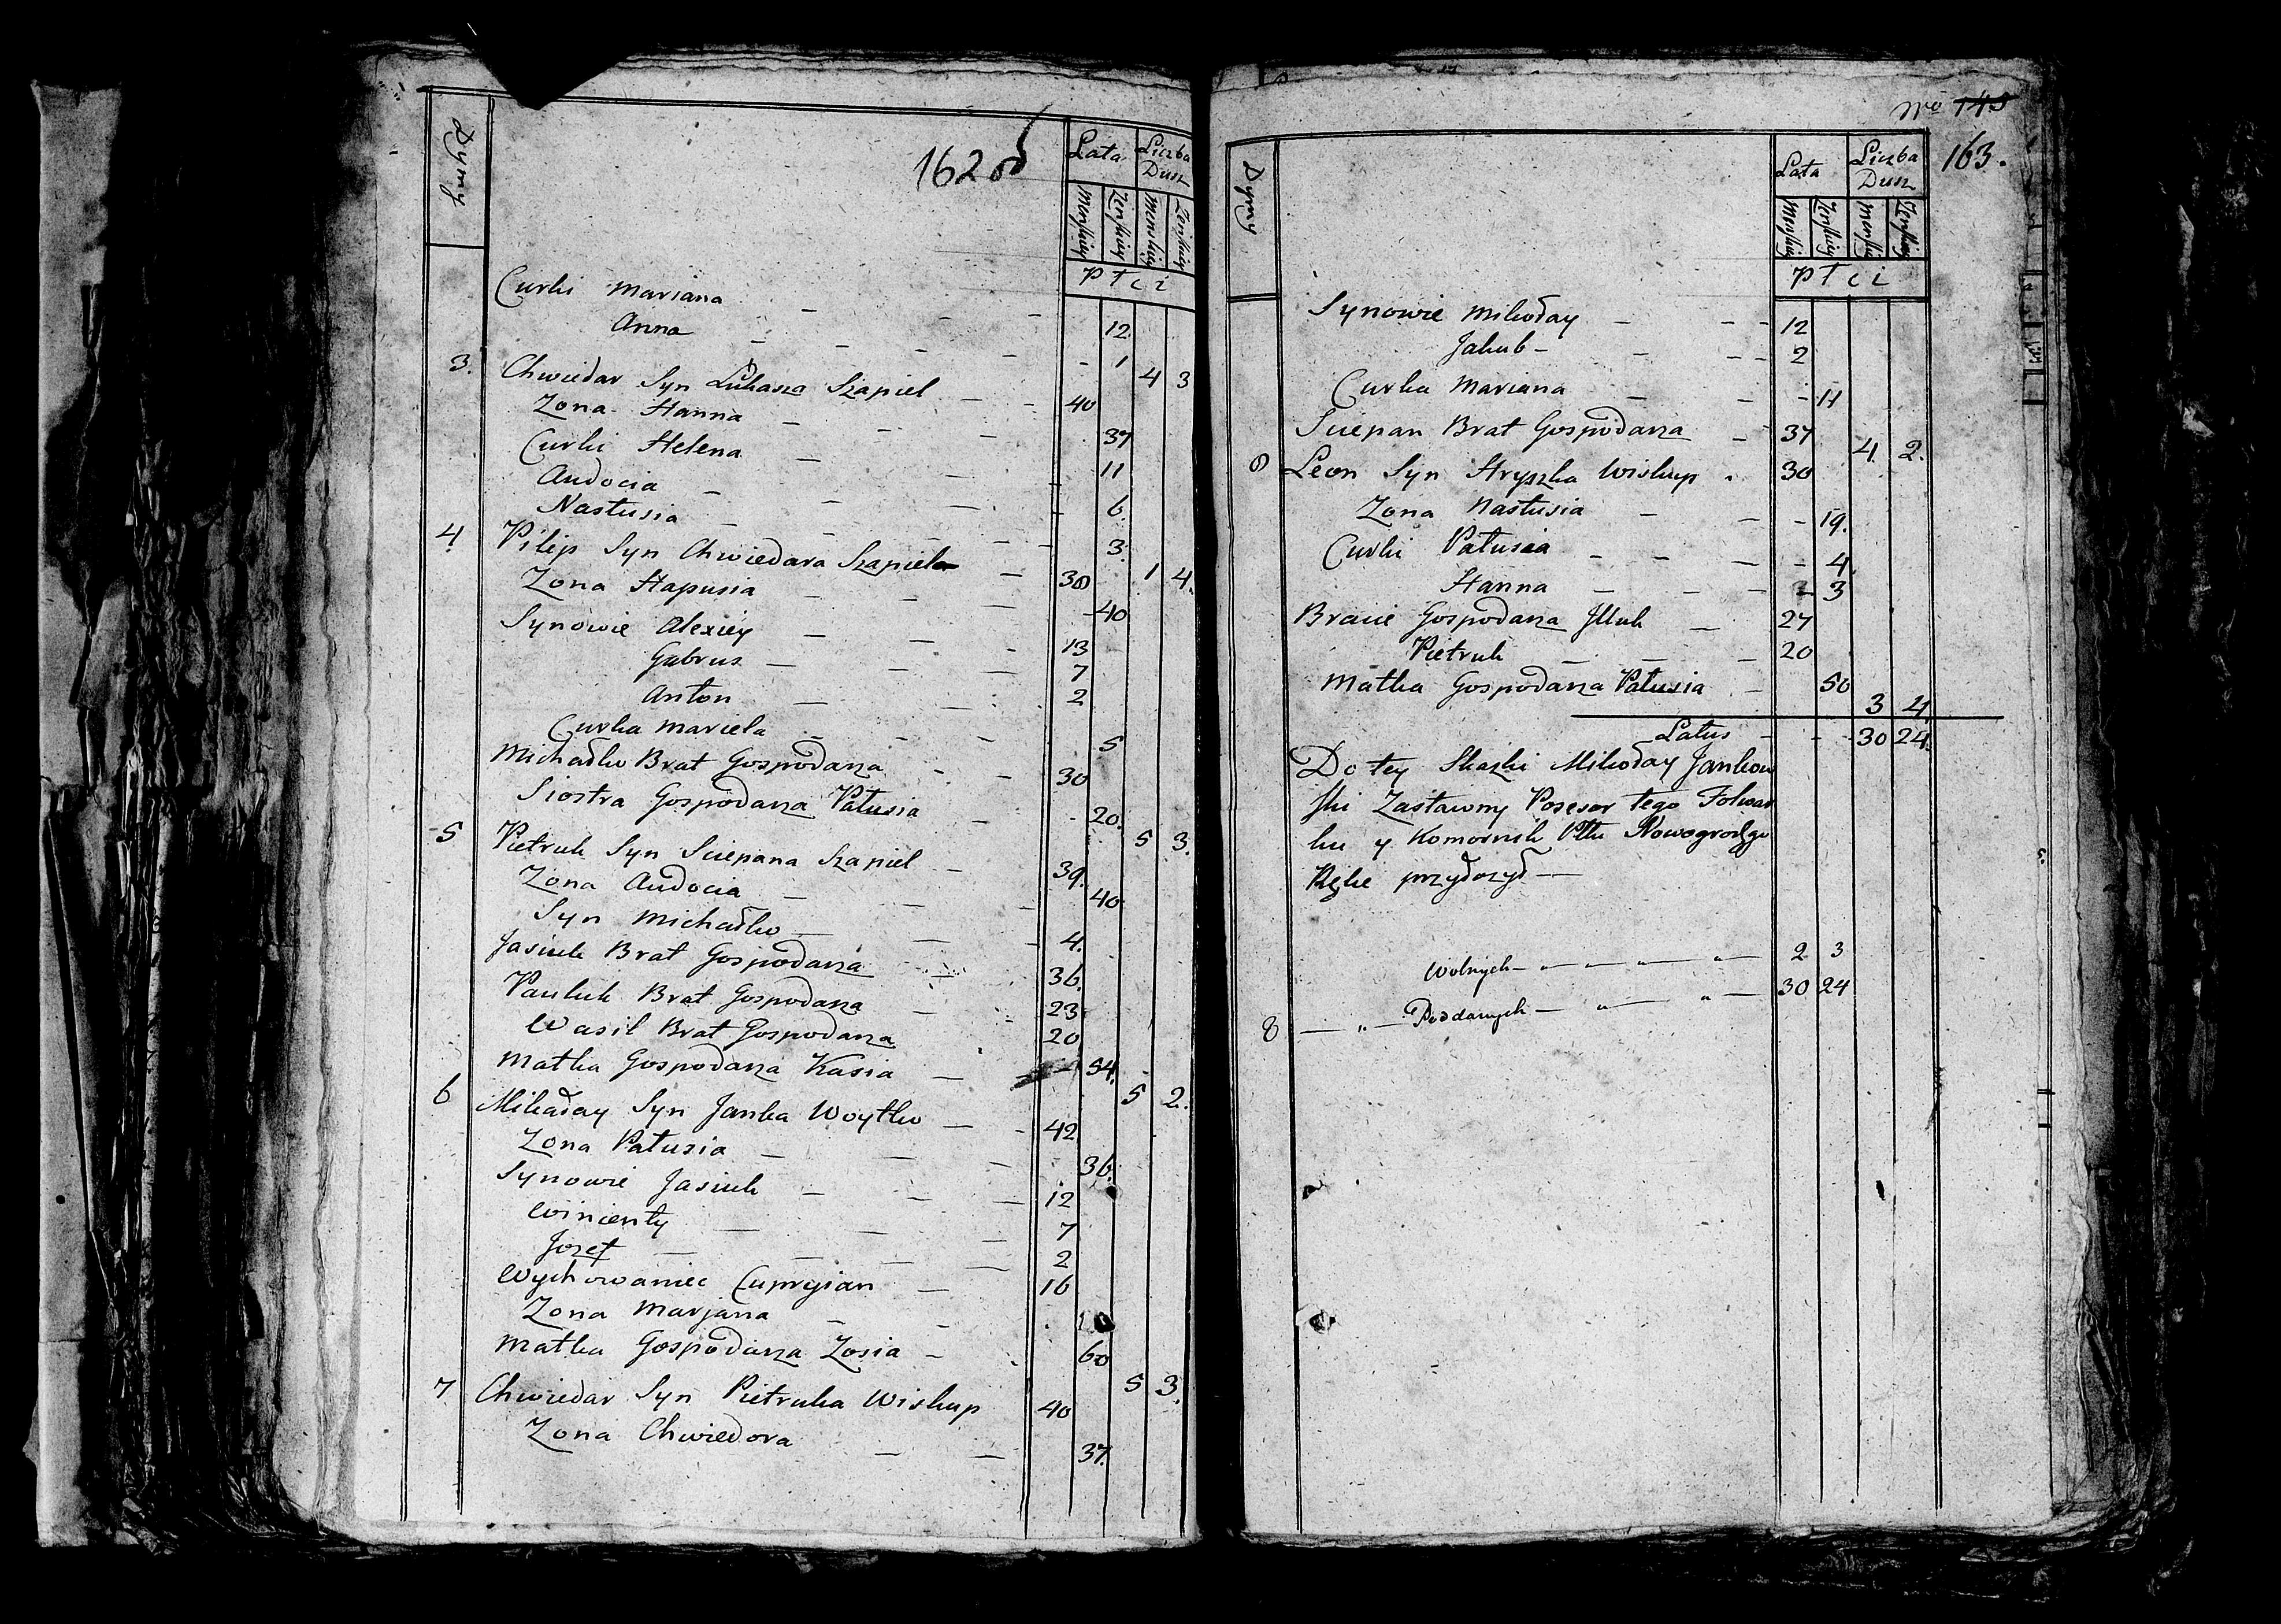 162 об
Dymy Lata Liczba Dusz
Męskiey Zeńskiey Męskiey Zeńskiey
Płci
Curki Mariana - - - 12
Anna - - - - 1 4 3
3. Chwiedar Syn Łukasza Szapiel - - 40
Zona Hanna - - - 37
Curki Helena - - 11
Audocia - - - 6.
Nastusia - - - 3
4. Pilip Syn Chwiedara Szapiela - 38 1 4.
Zona Hapusia - - - 40
Synowie Alexiey - - - 13
Gabrus - - - 7
Anton - - 2
Curka Mariela - - - 5
Michałko Brat Gospodarza - - 30
Siostra Gospodarza Patusia - 20. 5 3.
5 Pietruk Syn Sciepana Szapiel - 39.
Zona Audocia - - - 40
Syn Michałko - - - 4.
Jasiuk Brat Gospodarza - - 36.
Pauluk Brat Gospodarza - 23
Wasil Brat Gospodarza 20
Matka Gospodarza Kasia - 54. 5 2.
6 Mikołay Syn Janka Woytko - - 42
Zona Patusia - - - 36.
Synowie Jasiuk - - - 12
Wincenty - - - 7
Jozef - - - 2
Wychowaniec Cupryian - 16
Zona Marjana - -
Matka Gospodarza Zosia - 60 5 3.
7 Chwiedar Syn Pietruka Wiskup 40
Zona Chwiedora - - 37.
No 145
163.
Dymy Lata Liczba Dusz
Męskiey Zeńskiey Męskiey Zeńskiey
Płci
Synowie Mikołay - - - 12
Jakub - - - - 2
Curka Mariana - - - 11
Sciepan Brat Gospodarza - 37 4. 2.
8 Leon Syn Hryszka Wiskup - 30
Zona Nastusia - - - 19.
Curki Patusia - - - - 4.
Hanna - - - 3
Bracie Gospodarza Illuk - 27
Pietruk - - - 20
Matka Gospodarza Patusia - 50 3 4
Latus - - - 30 24.
Do tey Skazki Mikołay Jankow
ski Zastawny Posesor tego Folwar
ku y Komornik Pttu Nowogrodzgo
Rękę przyłozył -
Wolnych - - - - 2 3
8 - " - Poddanych - " - " - 30 24